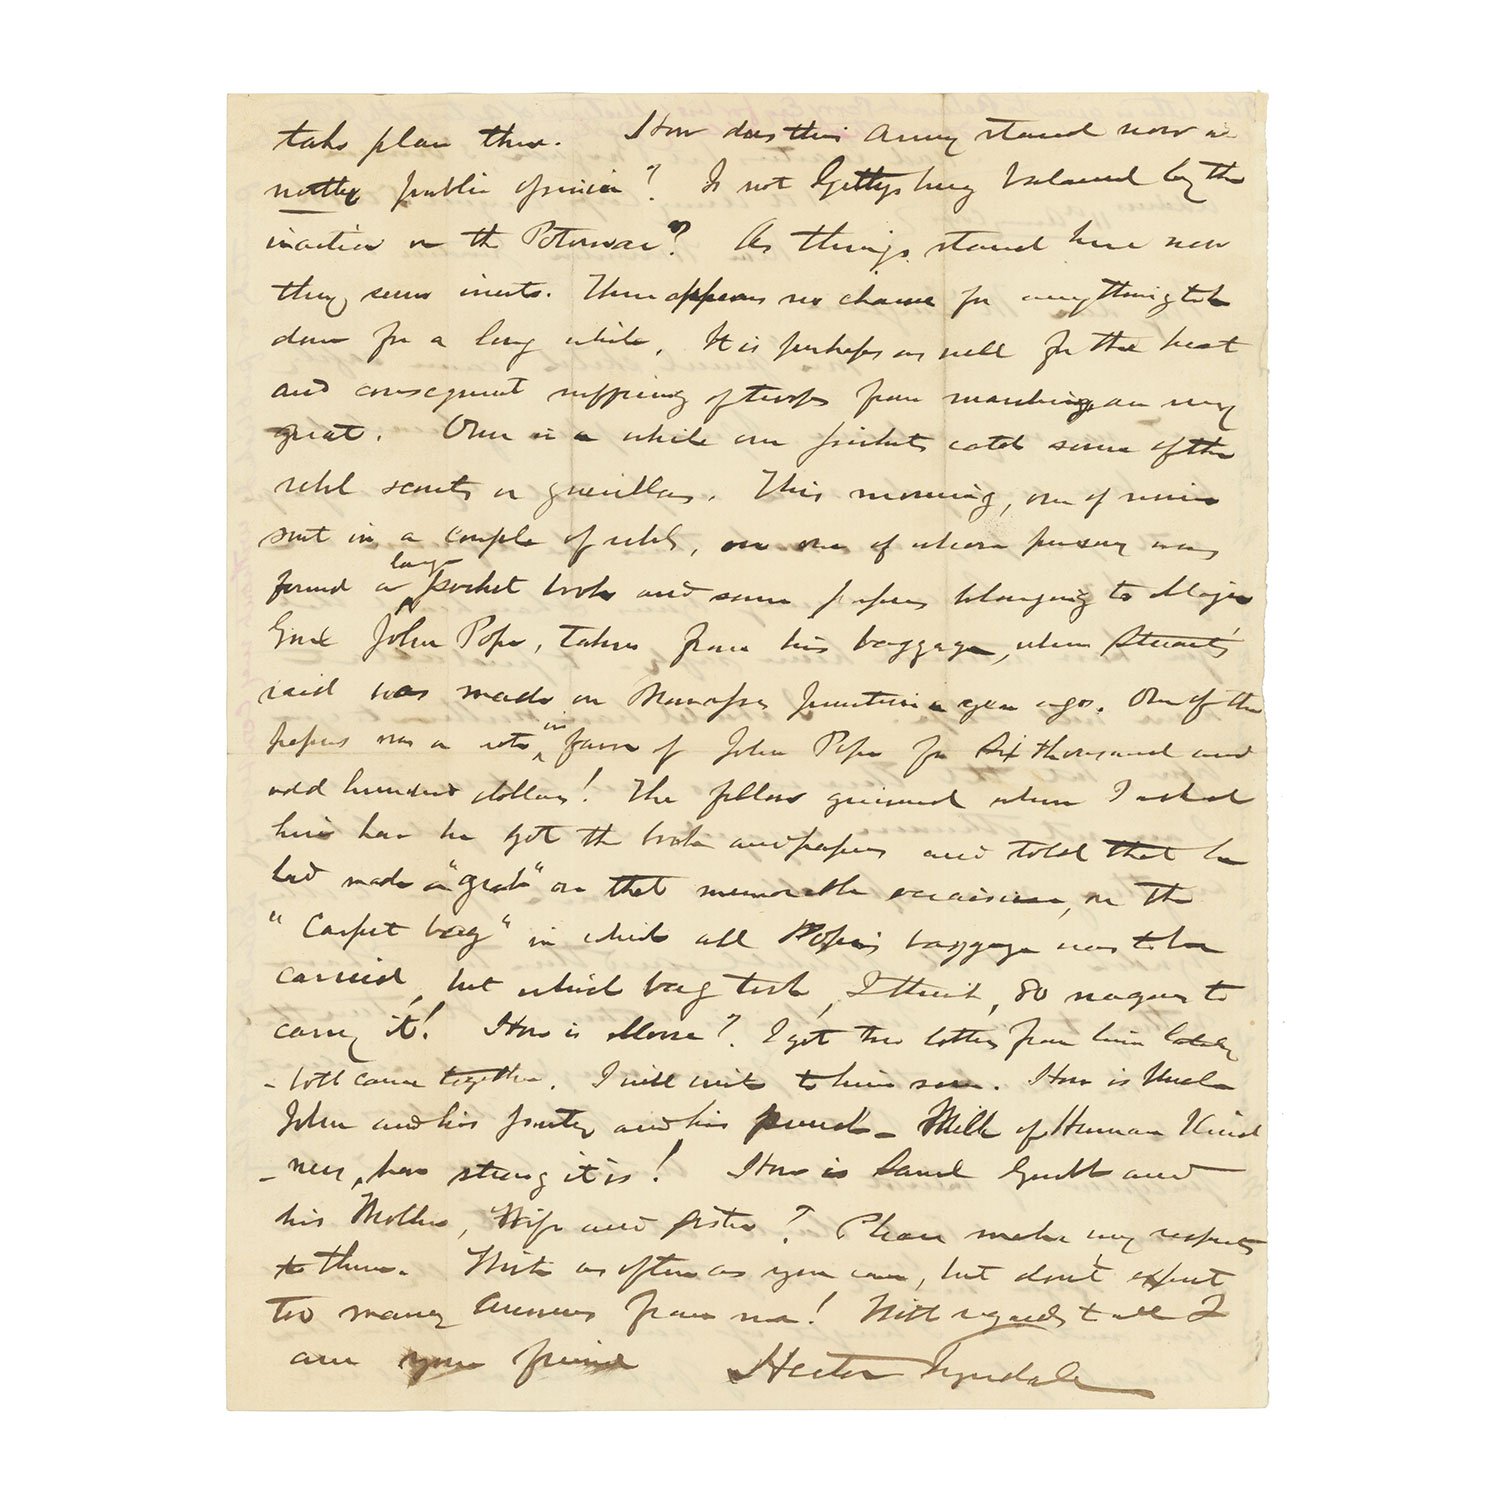 take place there. How does this Army stand now in
northn public opinion? Is not Gettysburg balanced by the
inaction on the Potomac? As things stand here now
they seem inert. There appears no chance for anything to be
done for a long while. It is perhaps as well for the heat
and consequent suffering of troops from marching are very
great. Once in a while our pickets catch some of the
rebel scouts or guerillas. This morning, one of mine
sent in a couple of rebels, on one of whose person was
found a large pocket book and some papers belonging to Major
Genl John Pope, taken from his baggage, when Stuart's
raid was made on Manassas Junction a year ago. One of the
papers was a note in favor of John Pope for Six thousand and
odd hundred dollars! The fellow grinned when I asked
him how he got the book and papers and told that he
had made a "grab" on that memorable occasion, on the
"Carpet bag" in which all Pope's baggage was to be
carried, but which bag took, I think, 80 wagons to
carry it! How is Morse? I got two letters from him lately
- both came together. I will write to him soon. How is Uncle
John and his party and his punch - Milk of Human Kind
-ness, how strong it is! How is Saml and
his Mother, Wife and Sister? Please make my respects
to them. Write as often as you can, but don't expect
too many answers from me! With regards to all I
am your friend Hector Tyndale